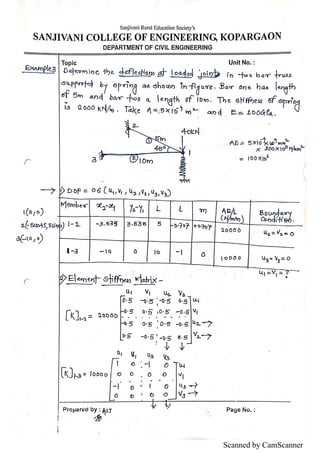 Sanjivani Rural Education Society's
SANJIVANI COLLEGE OF ENGINEERING, KOPARGAON
DEPARTMENT OF CIVIL ENGINEERING
Topic Unit No. :
Example 3 Determine the deflections at loaded joints in two bar truss
supported by spring as shown in figure. Bar one has length
of 5m and bar two a length of 10m. The stiffness of spring
is 2000 kN/m. Take A = 5x10 m² and E = 200GPa.
2
40kN
5m
45°
1
3 10m
DOF = 06 (u₁, v₁, u₂, v₂, u₃, v₃)
Member x₂-x₁ y₂-y₁ L l m AE/L (N/mm) Boundary Condition
1(0,0)
1-2 -3.535 3.535 5 -0.707 0.707 20000 u₂ = v₂ = 0
3(-10,0)
1-3 -10 0 10 -1 0 10000 u₃ = v₃ = 0
u₁ = v₁ = ?
Element Stiffness Matrix -
u₁ v₁ u₂ v₂
0.5 -0.5 -0.5 0.5 u₁
[K]₁₋₂ = 20000 -0.5 0.5 0.5 -0.5 v₁
-0.5 0.5 0.5 -0.5 u₂
0.5 -0.5 -0.5 0.5 v₂
u₁ v₁ u₃ v₃
1 0 -1 0 u₁
[K]₁₋₃ = 10000 0 0 0 0 v₁
-1 0 1 0 u₃
0 0 0 0 v₃
Prepared by : Page No. :
Scanned by CamScanner